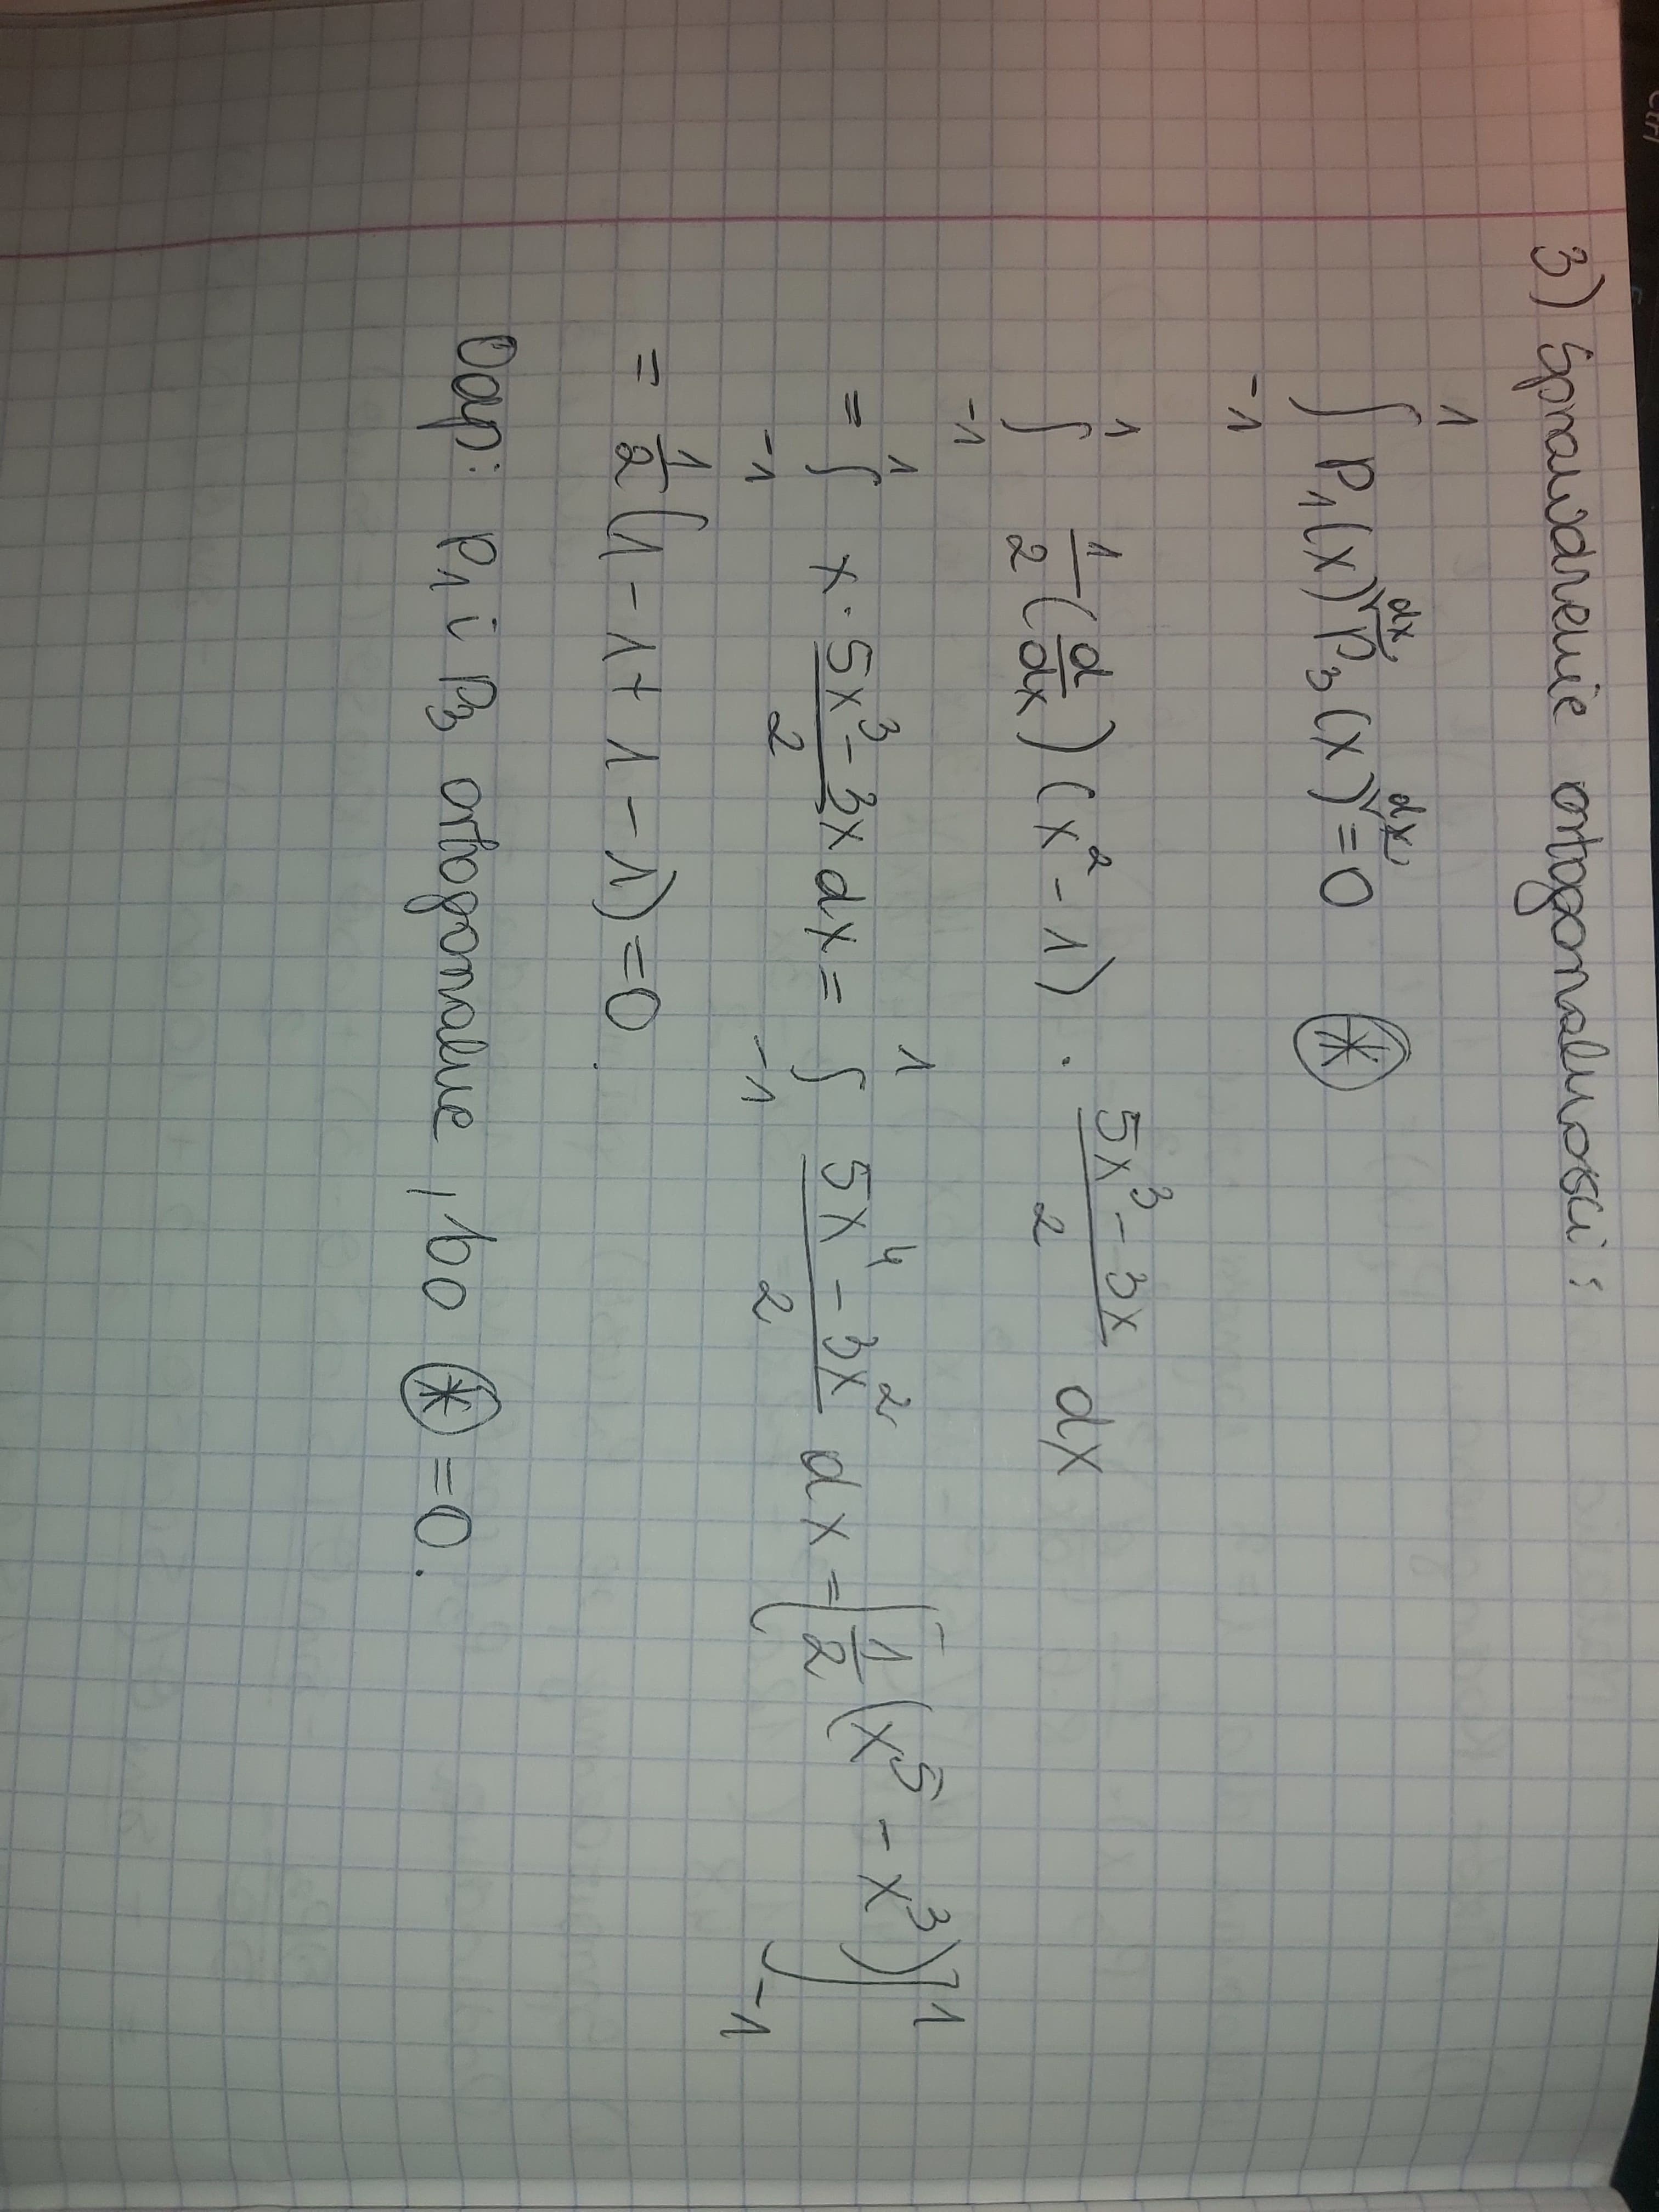 Ctrl
3) Sprawdzenie ortogonalności:
∫₋₁¹ P₁(x) dx P₃(x) dx = 0 ⊛
∫₋₁¹ 1/2 (d/dx) (x² - 1) · (5x³ - 3x)/2 dx
= ∫₋₁¹ x · (5x³ - 3x)/2 dx = ∫₋₁¹ (5x⁴ - 3x²)/2 dx = [1/2 (x⁵ - x³)]₋₁¹
= 1/2 (1 - 1 + 1 - 1) = 0.
Odp: P₁ i P₃ ortogonalne, bo ⊛ = 0.